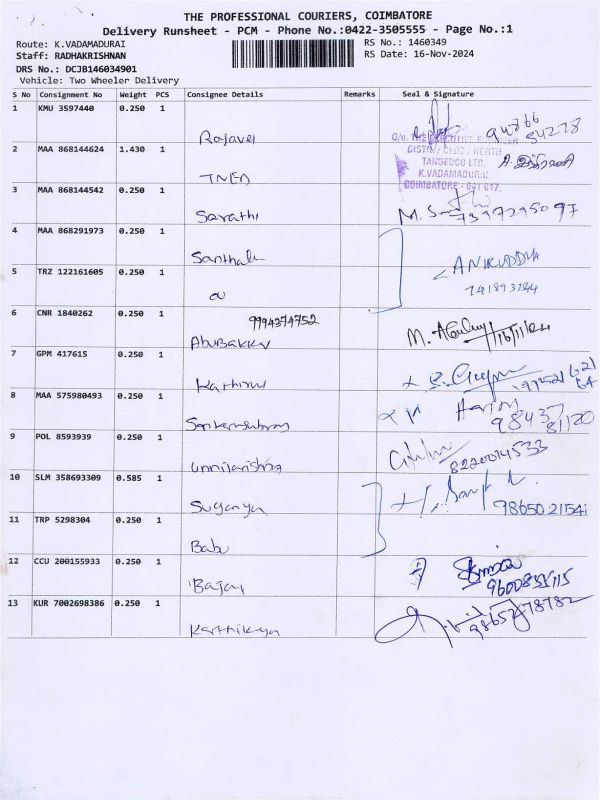 THE PROFESSIONAL COURIERS, COIMBATORE
Delivery Runsheet - PCM - Phone No.:0422-3505555 - Page No.:1
Route: K.VADAMADURAI
RS No.: 1460349
Staff: RADHAKRISHNAN
RS Date: 16-Nov-2024
DRS No.: DCJB146034901
Vehicle: Two Wheeler Delivery
S No Consignment No Weight PCS Consignee Details Remarks Seal & Signature
1 KMU 3597440 0.250 1
Rajavel
94866
54278
2 MAA 868144624 1.430 1
TNEB
O/o. THE EXECUTIVE ENGINEER
NORTH
TANGEDCO LTD.
K.VADAMADURAI
COIMBATORE - 641 017.
3 MAA 868144542 0.250 1
Sarathi
M.
7397295097
4 MAA 868291973 0.250 1
5 TRZ 122161605 0.250 1
ANIRUDDHA
6 CNR 1840262 0.250 1
9994374752
Abubakkr
M.
16/11/24
7 GPM 417615 0.250 1
8 MAA 575980493 0.250 1
98437
81120
9 POL 8593939 0.250 1
Unnikrishna
8220014533
10 SLM 358693309 0.585 1
Suganya
9865021541
11 TRP 5298304 0.250 1
Babu
12 CCU 200155933 0.250 1
Bajaj
9600835115
13 KUR 7002698386 0.250 1
Karthikeya